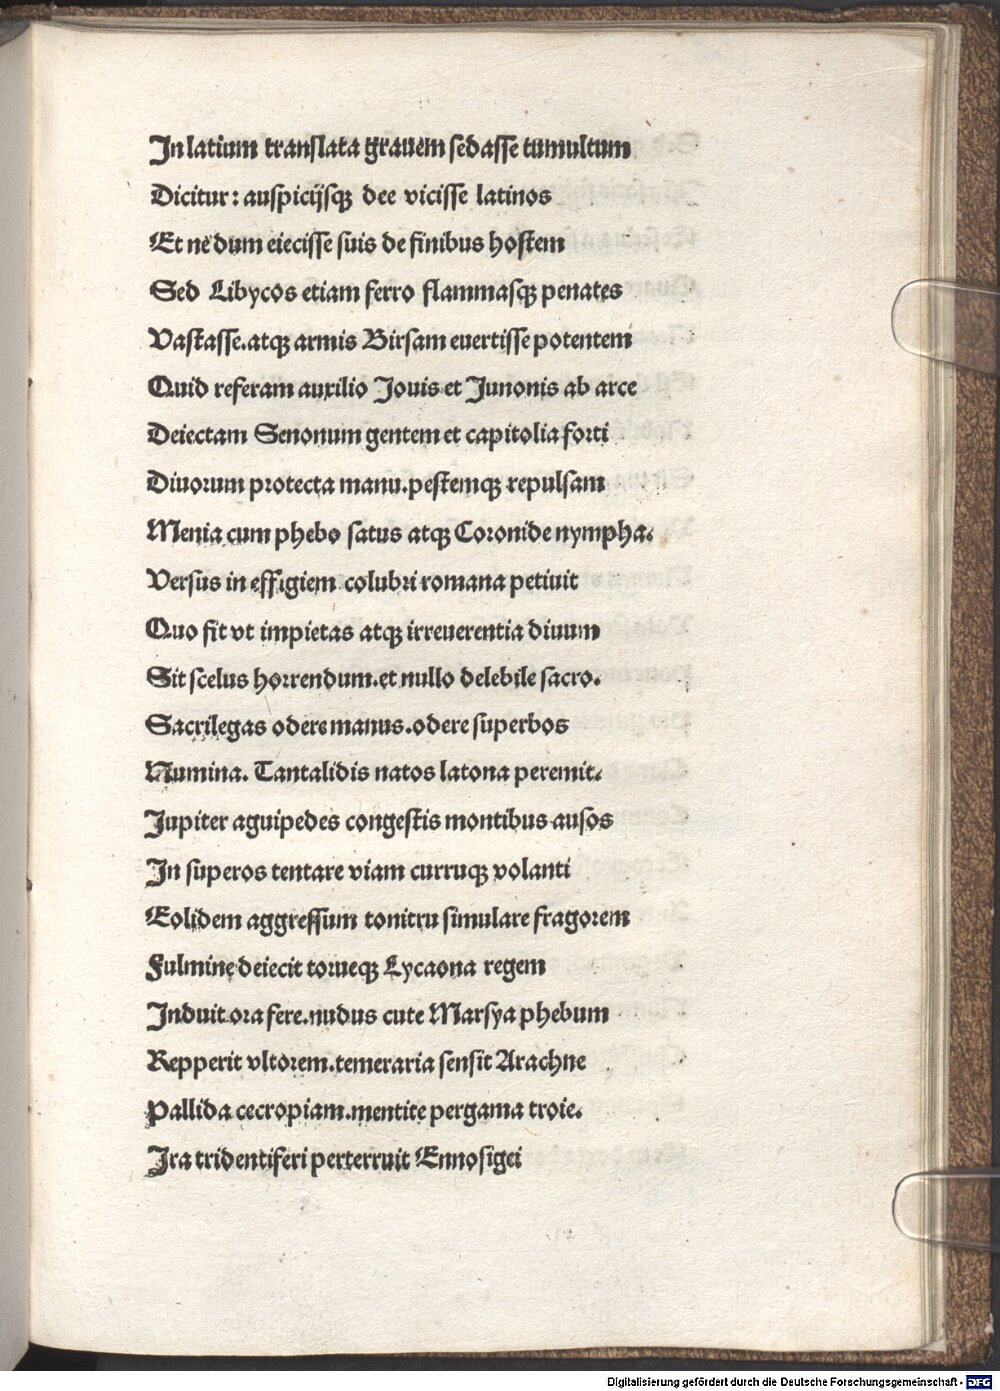 In latium translata grauem sedasse tumultum
Dicitur: auspicijsqꝫ dee vicisse latinos
Et nēdum eiecisse suis de finibus hostem
Sed Libycos etiam ferro flammasqꝫ penates
Vastasse.atqꝫ armis Birsam euertisse potentem
Quid referam auxilio Jouis et Junonis ab arce
Deiectam Senonum gentem et capitolia forti
Diuorum protecta manu.pestemqꝫ repulsam
Menia cum phebo satus atqꝫ Coronide nympha.
Versus in effigiem colubri romana petiuit
Quo fit vt impietas atqꝫ irreuerentia diuum
Sit scelus horrendum.et nullo delebile sacro.
Sacrilegas odere manus.odere superbos
Numina. Tantalidis natos latona peremit.
Jupiter aguipedes congestis montibus ausos
In superos tentare viam curruqꝫ volanti
Eolidem aggressum tonitru simulare fragorem
Fulmine deiecit torueqꝫ Lycaona regem
Induit ora fere.nudus cute Marsya phebum
Repperit vltorem.temeraria sensit Arachne
Pallida cecropiam.mentite pergama troie.
Ira tridentiferi perterruit Ennosigei
Digitalisierung gefördert durch die Deutsche Forschungsgemeinschaft - DFG